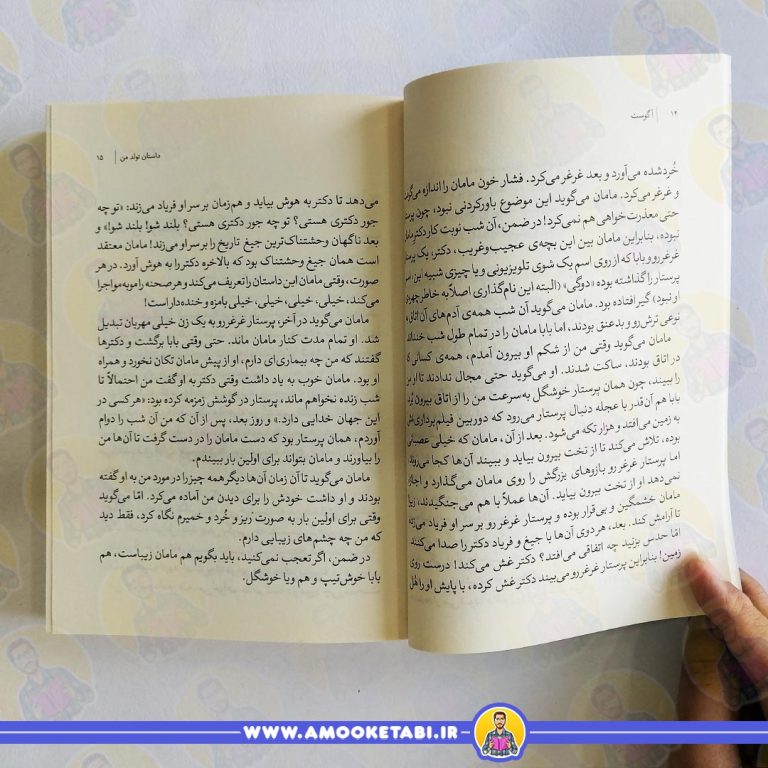 ۱۴ | آگوست
خُردشده می‌آورد و بعد غرغر می‌کرد. فشار خون مامان را اندازه می‌گرفت
و غرغر می‌کرد. مامان می‌گوید این موضوع باورکردنی نبود، چون پرستار
حتی معذرت‌خواهی هم نمی‌کرد! در ضمن، آن شب نوبت کار دکتر مامان
نبوده، بنابراین مامان بین این بچه‌ی عجیب‌وغریب، دکتر، یک پرستار
غرغررو و بابا که از روی اسم یک شوی تلویزیونی و یا چیزی شبیه این اسم
پرستار را گذاشته بوده «دوگی» (البته این نام‌گذاری اصلاً به خاطر چهره‌ی
او نبود) گیر افتاده بود. مامان می‌گوید آن شب همه‌ی آدم‌های آن اتاق
نوعی ترش‌رو و بدعنق بودند، اما بابا مامان را در تمام طول شب خنداند.
مامان می‌گوید وقتی من از شکم او بیرون آمدم، همه‌ی کسانی که
در اتاق بودند، ساکت شدند. او می‌گوید حتی مجال ندادند تا او من
را ببیند، چون همان پرستار خوشگل به‌سرعت من را از اتاق بیرون برد.
بابا هم آن‌قدر با عجله دنبال پرستار می‌رود که دوربین فیلم‌برداری‌اش
به زمین می‌افتد و هزار تکه می‌شود. بعد از آن، مامان که خیلی عصبانی
بوده، تلاش می‌کند تا از تخت بیرون بیاید و ببیند آن‌ها کجا می‌روند
اما پرستار غرغررو بازوهای بزرگش را روی مامان می‌گذارد و اجازه
نمی‌دهد او از تخت بیرون بیاید. آن‌ها عملاً با هم می‌جنگیدند، زیرا
مامان خشمگین و بی‌قرار بوده و پرستار غرغررو بر سر او فریاد می‌زده
تا آرامش کند. بعد، هر دوی آن‌ها با جیغ و فریاد دکتر را صدا می‌کنند.
امّا حدس بزنید چه اتفاقی می‌افتد؟ دکتر غش می‌کند! درست روی
زمین! بنابراین پرستار غرغررو می‌بیند دکتر غش کرده، با پایش او را هل
داستان تولد من | ۱۵
می‌دهد تا دکتر به هوش بیاید و هم‌زمان بر سر او فریاد می‌زند: «تو چه
جور دکتری هستی؟ تو چه جور دکتری هستی؟ بلند شو! بلند شو!» و
بعد ناگهان وحشتناک‌ترین جیغ تاریخ را بر سر او می‌زند! مامان معتقد
است همان جیغ وحشتناک بود که بالاخره دکتر را به هوش آورد. در هر
صورت، وقتی مامان این داستان را تعریف می‌کند و هر صحنه را موبه‌مو اجرا
می‌کند، خیلی، خیلی، خیلی، خیلی بامزه و خنده‌دار است!
مامان می‌گوید در آخر، پرستار غرغررو به یک زن خیلی مهربان تبدیل
شد. او تمام مدت کنار مامان ماند. حتی وقتی بابا برگشت و دکترها
گفتند که من چه بیماری‌ای دارم، او از پیش مامان تکان نخورد و همراه
او بود. مامان خوب به یاد داشت وقتی دکتر به او گفت من احتمالاً تا
شب زنده نخواهم ماند، پرستار در گوشش زمزمه کرده بود: «هر کسی در
این جهان خدایی دارد.» و روز بعد، پس از آن که من آن شب را دوام
آوردم، همان پرستار بود که دست مامان را در دست گرفت تا آن‌ها من
را بیاورند و مامان بتواند برای اولین بار ببیندم.
مامان می‌گوید تا آن زمان آن‌ها دیگر همه چیز را در مورد من به او گفته
بودند و او داشت خودش را برای دیدن من آماده می‌کرد. امّا می‌گوید
وقتی برای اولین بار به صورت ریز و خُرد و خمیرم نگاه کرد، فقط دید
که من چه چشم‌های زیبایی دارم.
در ضمن، اگر تعجب نمی‌کنید، باید بگویم هم مامان زیباست، هم
بابا خوش‌تیپ و هم ویا خوشگل.
WWW.AMOOKETABI.IR